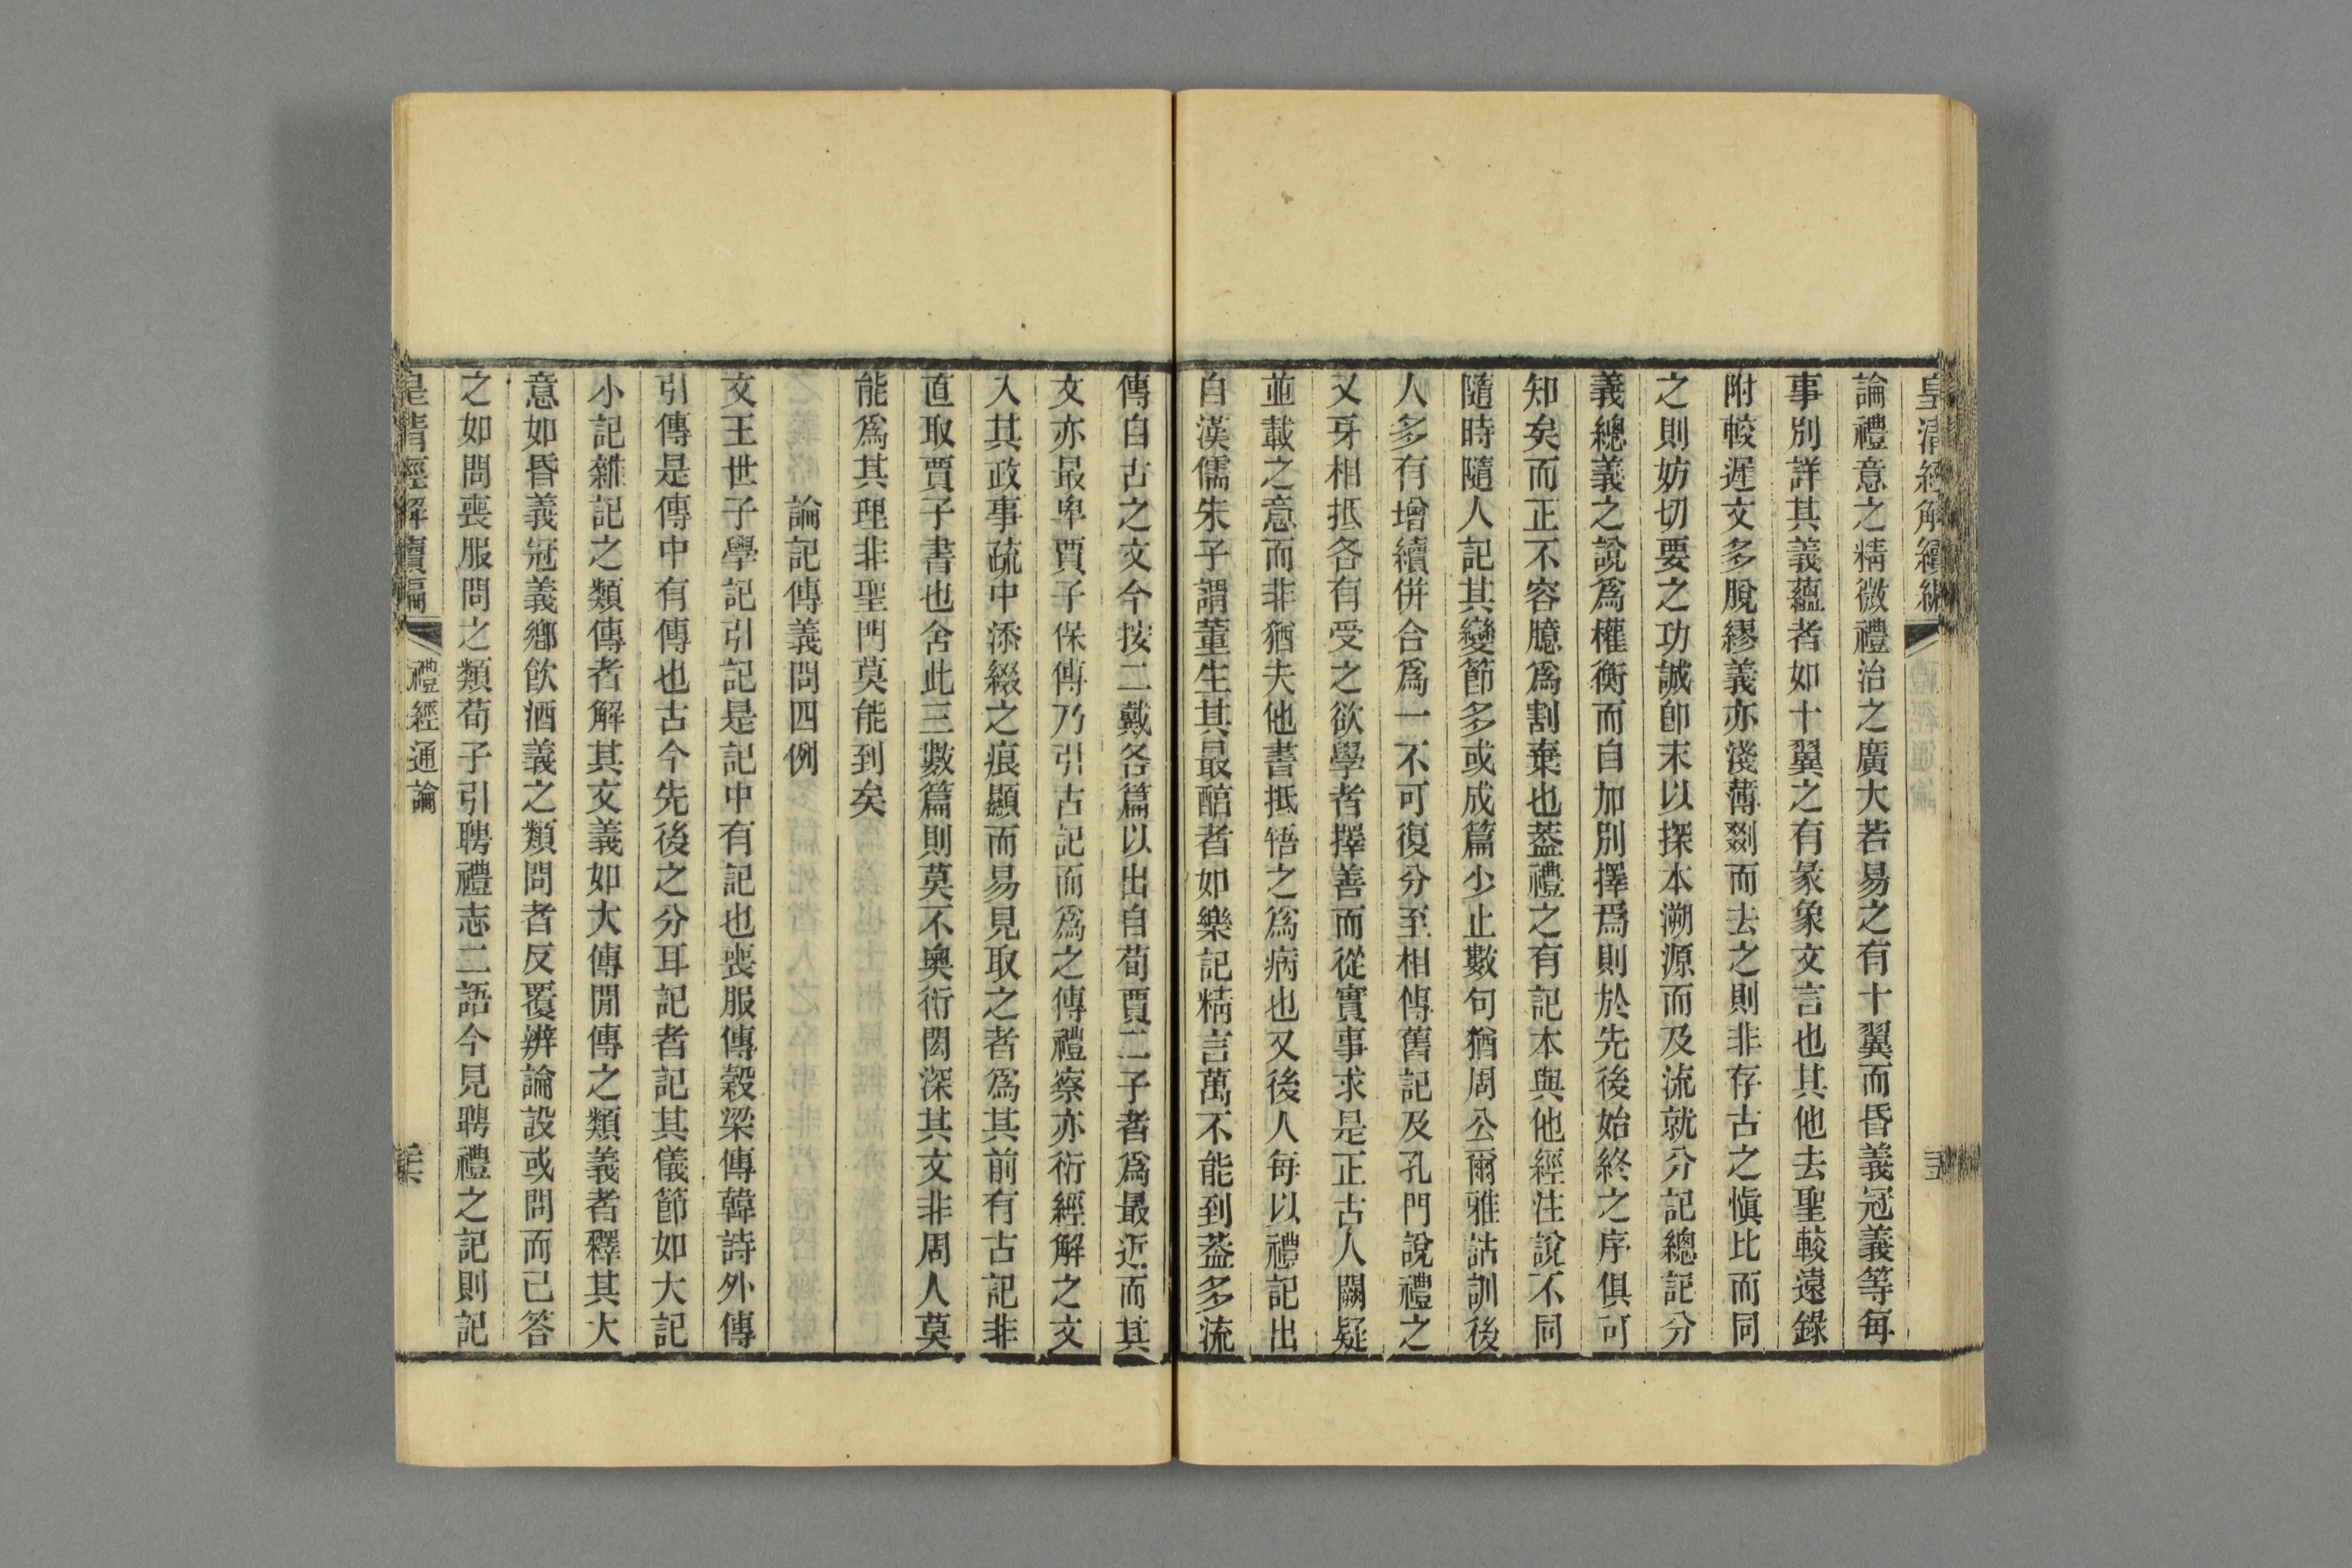 皇清經解續編
論禮意之精微禮治之廣大若易之有十翼而昏義冠義等每
事別詳其義蘊者如十翼之有彖象文言也其他去聖較遠錄
附較遲文多脫繆義亦淺薄劉而去之則非存古之愼比而同
之則妨切要之功誠卽末以探本溯源而及流就分記總記分
義總義之說爲權衡而自加別擇焉則於先後始終之序俱可
知矣而正不容臆爲割棄也蓋禮之有記本與他經注說不同
隨時隨人記其變節多或成篇少止數句猶周公爾雅詁訓後
人多有增續併合爲一不可復分至相傳舊記及孔門說禮之
文牙相抵各有受之欲學者擇善而從實事求是正古人闕疑
並載之意而非猶夫他書抵牾之爲病也又後人每以禮記出
自漢儒朱子謂董生其最醇者如樂記精言萬不能到益多流
傳自古之文今按二戴各篇以出自荀賈二子者爲最近而其
文亦最卑賈子保傅乃引古記而爲之傳禮察亦衍經解之文
入其政事疏中添綴之痕顯而易見取之者爲其前有古記非
直取賈子書也舍此三數篇則莫不奧衍閎深其文非周人莫
能爲其理非聖門莫能到矣
論記傳義問四例
文王世子學記引記是記中有記也喪服傳穀梁傳韓詩外傳
引傳是傳中有傳也古今先後之分耳記者記其儀節如大記
小記雜記之類傳者解其文義如大傳閒傳之類義者釋其大
意如昏義冠義鄉飮酒義之類問者反覆辨論設或問而已答
之如問喪服問之類荀子引聘禮志二語今見聘禮之記則記
皇清經解續編
禮經通論